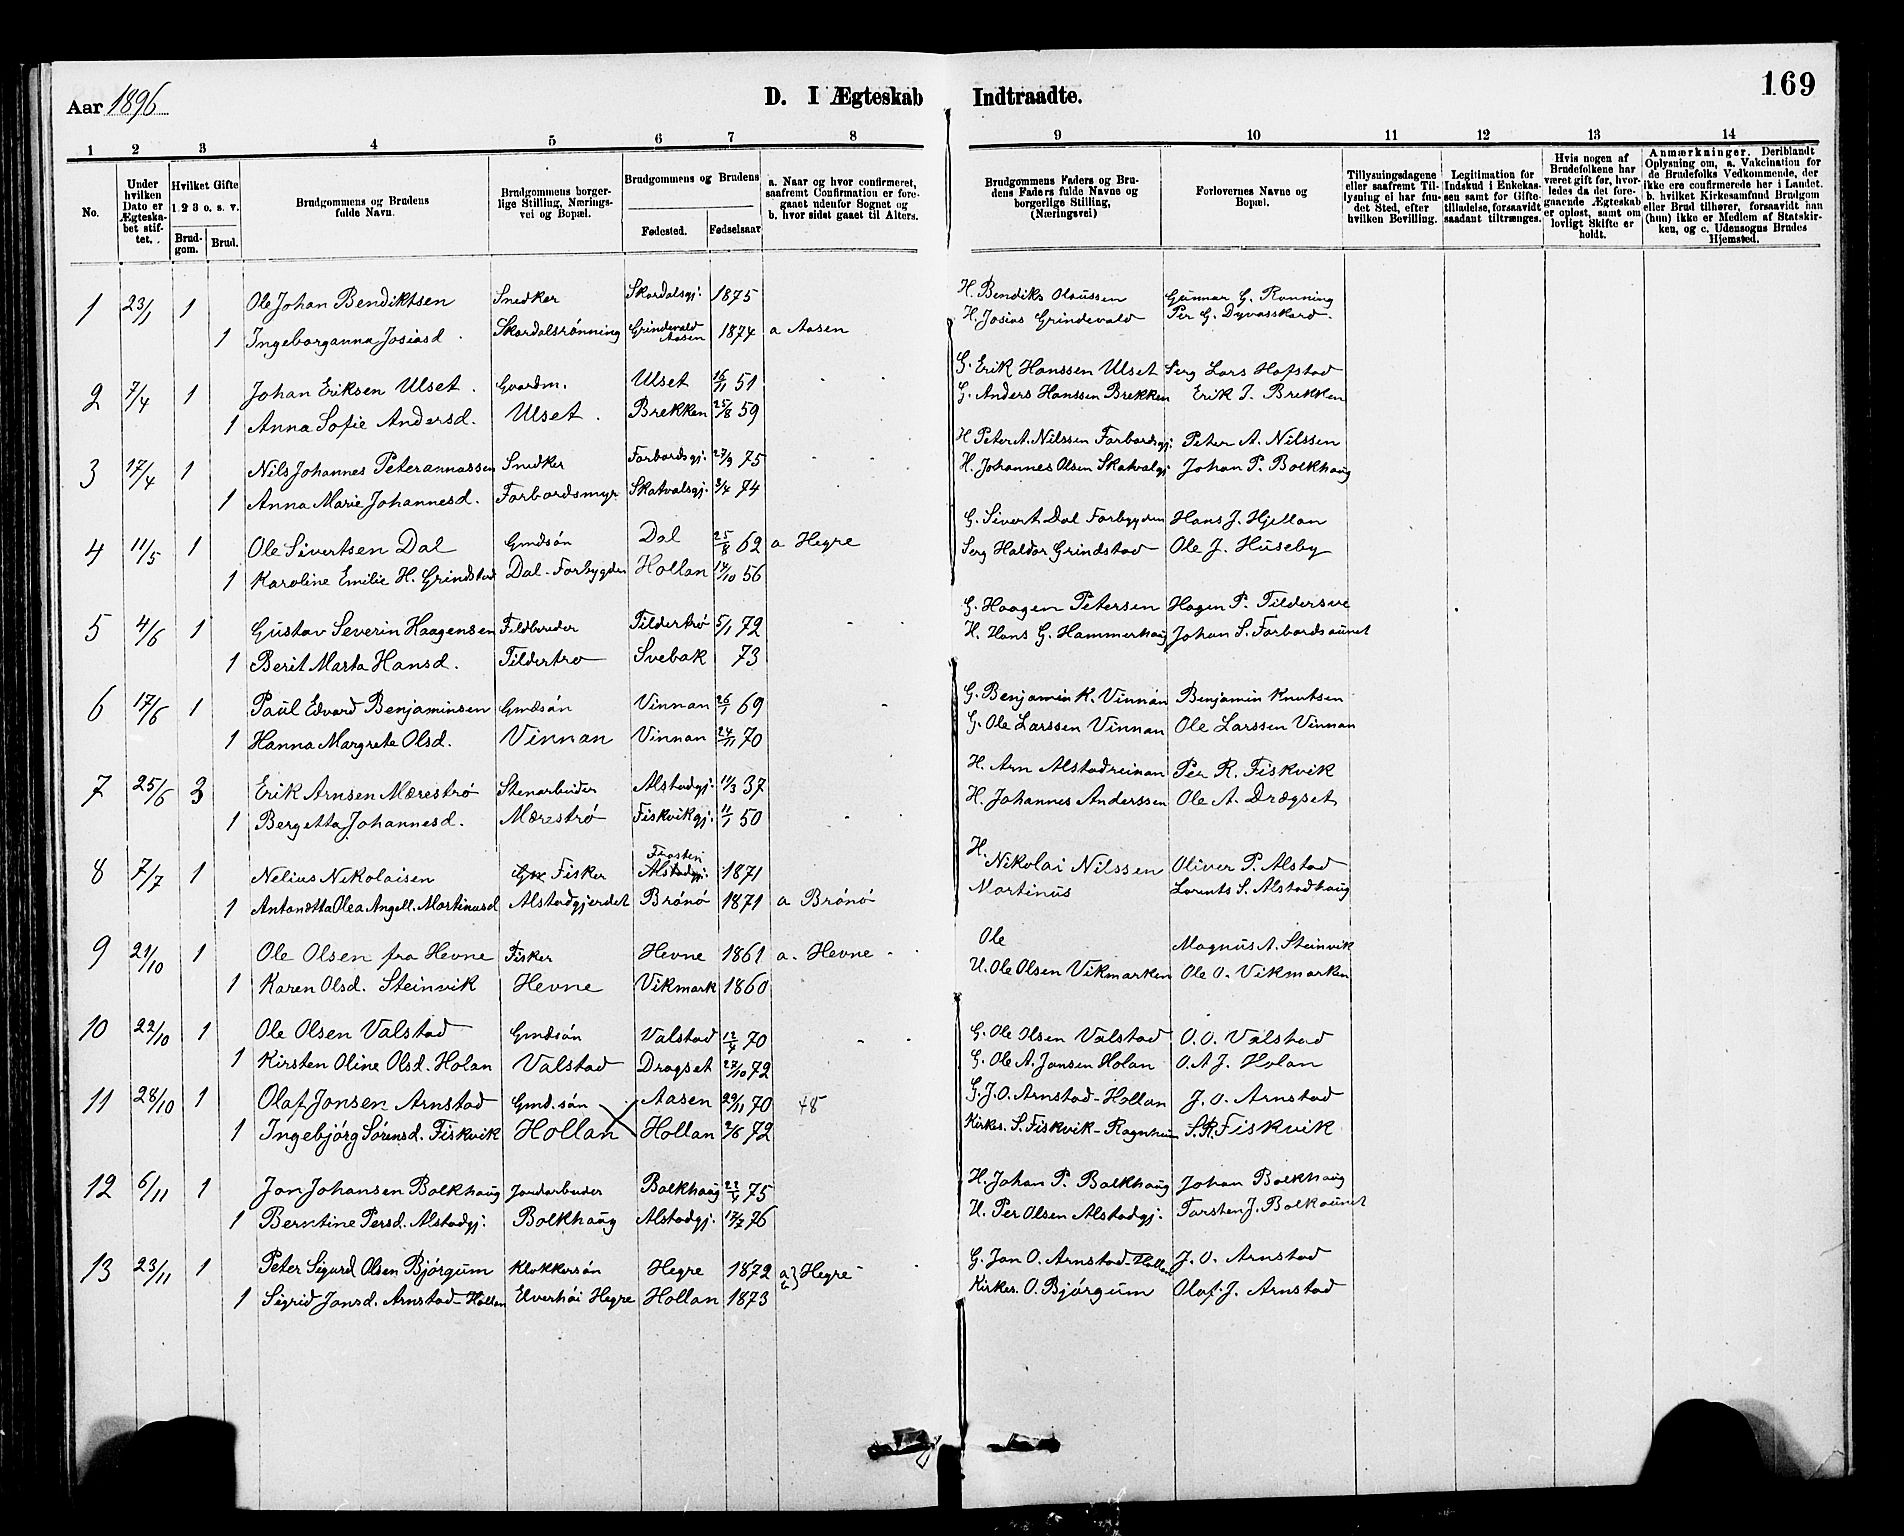 Aar 1896
D. I Ægteskab Indtraadte.
169
1 2 3 4 5 6 7 8 9 10 11 12 13 14
No.
Under hvilken Dato er Ægteskabet stiftet.
Hvilket Gifte 1 2 3 o. s. v.
Brudgom. Brud.
Brudgommens og Brudens fulde Navn.
Brudgommens borgerlige Stilling, Næringsvei og Bopæl.
Brudgommens og Brudens
Fødested. Fødselsaar
a. Naar og hvor confirmeret, saafremt Confirmation er foregaaet udenfor Sognet og b. hvor sidst gaaet til Alters.
Brudgommens Faders og Brudens Faders fulde Navne og borgerlige Stilling, (Næringsvei)
Forlovernes Navne og Bopæl.
Tillysningsdagene eller saafremt Tillysning ei har fundet Sted, efter hvilken Bevilling.
Legitimation for Indskud i Enkekassen samt for Giftetilladelse, forsaavidt saadant tiltrænges.
Hvis nogen af Brudefolkene har været gift før, hvorledes da det foregaaende Ægteskab er opløst, samt om lovligt Skifte er holdt.
Anmærkninger. Deriblandt Oplysning om, a. Vakcination for de Brudefolks Vedkommende, der ikke ere confirmerede her i Landet. b. hvilket Kirkesamfund Brudgom eller Brud tilhører, forsaavidt han (hun) ikke er Medlem af Statskirken, og c. Udensogns Brudes Hjemsted.
1 23/1 1 Ole Johan Bendiktsen Snedker Skordalsgj. 1875 H. Bendiks Olaussen Gunnar G. Rønning
1 Ingeborganna Josiasd. Skordalsrønning Grindevald Aasen 1874 a Aasen H. Josias Grindevald Per G. Dyvasskard.
2 7/4 1 Johan Eriksen Ulset. Gaardm. Ulset 16/11 51 G. Erik Hanssen Ulset Serg Lars Hofstad
1 Anna Sofie Andersd. Ulset. Brekken 25/8 59 G. Anders Hanssen Brekken Erik J. Brekken
3 17/4 1 Nils Johannes Peterannassen Snedker Forbordsgj. 27/9 75 H Peter A. Nilssen Forbordsgj. Peter A. Nilssen
1 Anna Marie Johannesd. Forbordsmyr Skatvalsgj. 3/4 74 H. Johannes Olsen Skatvalgj. Johan P. Bolkhaug
4 11/5 1 Ole Sivertsen Dal Gmdsøn Dal 25/8 62 a Hegre G. Sivert Dal Forbygden Hans J. Hjellan
1 Karoline Emilie H. Grindstad Dal-Forbygden Hollan 14/10 56 Serg Haldor Grindstad Ole J. Huseby
5 4/6 1 Gustav Severin Haagensen Fildbereder Tildertrø 5/1 72 G. Haagen Petersen Hagen P. Tildersve
1 Berit Marta Hansd. Tildertrø Svebak 73 H. Hans G. Hammerhaug Johan S. Forbordsaunet
6 17/6 1 Paul Edvard Benjaminsen Gmdsøn Vinnan 26/1 69 G. Benjamin K. Vinnan Benjamin Knutsen
1 Hanna Margrete Olsd. Vinnan Vinnan 24/11 70 G. Ole Larssen Vinnan Ole Larssen Vinnan
7 25/6 3 Erik Arnsen Mærestrø Stenarbeider Alstadgj. 11/3 37 H. Arn Alstadreinan Per R. Fiskvik
1 Bergetta Johannesd. Mærestrø Fiskvikgj. 11/1 50 H. Johannes Anderssen Ole A. Drægset
8 7/7 1 Nelius Nikolaisen Fisker Frosten Alstadgj. 1871 H. Nikolai Nilssen Oliver P. Alstad
1 Antonetta Olea Angell. Martinusd Alstadgjerdet Brønø 1871 a Brønø Martinus Lorents S. Alstadhaug
9 21/10 1 Ole Olsen fra Hevne Fisker Hevne 1861 a. Hevne Ole Magnus A. Steinvik
1 Karen Olsd. Steinvik Hevne Vikmark 1860 H. Ole Olsen Vikmarken Ole O. Vikmarken
10 22/10 1 Ole Olsen Valstad Gmdsøn Valstad 12/4 70 G. Ole Olsen Valstad O. O. Valstad
1 Kirsten Oline Olsd. Holan Valstad Dragset 27/10 72 G. Ole A. Jansen Holan O. A J. Holan
11 28/10 1 Olaf Jonsen Arnstad Gmd.søn Aasen 29/11 70 48 G. J. O. Arnstad-Hollan J. O. Arnstad
1 Ingebjørg Sørensd. Fiskvik Hollan Hollan 2/6 72 Kirkes. S. Fiskvik-Ragnheim S. K. Fiskvik
12 6/11 1 Jon Johansen Bolkhaug Jordarbeider Bolkhaug 22/4 75 H. Johan P. Bolkhaug Johan Bolkhaug
1 Berntine Persd. Alstadgj. Bolkhaug Alstadgj. 17/2 76 H. Per Olsen Alstadgj. Torsten J. Bolkaunet
13 23/11 1 Peter Sigurd Olsen Bjørgum Klokkersøn Hegre 1872 a b } Hegre G. Jon O. Arnstad-Hollan J. O. Arnstad
1 Sigrid Jonsd. Arnstad-Hollan Elverhøi Hegre Hollan 1873 Kirkes. O. Bjørgum Olaf. J. Arnstad